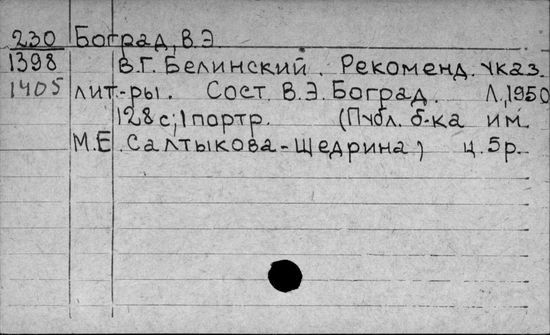 230 Боград, В.Э.
1398 В.Г. Белинский. Рекоменд. указ.
1405 лит-ры. Сост. В.Э. Боград. Л.,1950
128с; 1 портр. (Публ. б-ка им.
М.Е. Салтыкова-Щедрина) ц. 5р.